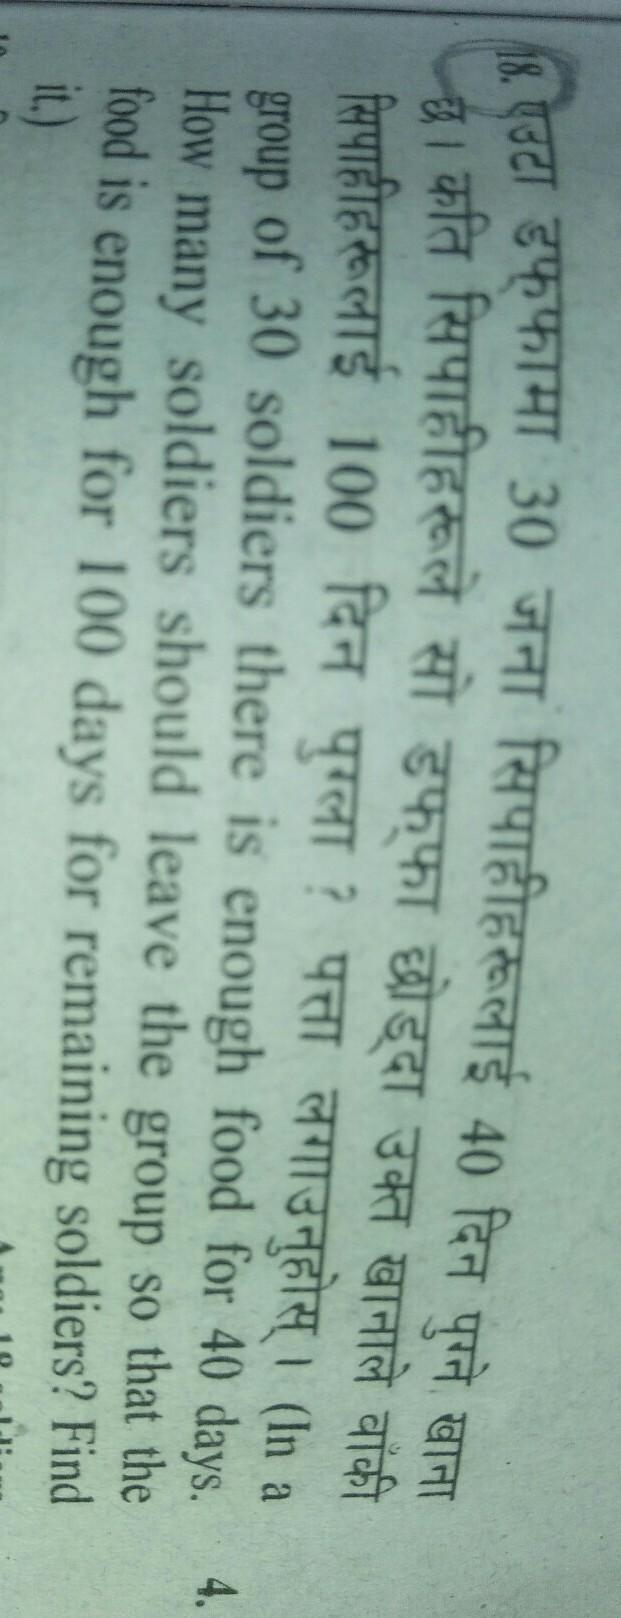 18. एउटा डफ्फामा 30 जना सिपाहीहरूलाई 40 दिन पुग्ने खाना
छ। कति सिपाहीहरूले सो डफ्फा छोड्दा उक्त खानाले बाँकी
सिपाहीहरूलाई 100 दिन पुग्ला ? पत्ता लगाउनुहोस्। (In a
group of 30 soldiers there is enough food for 40 days.
How many soldiers should leave the group so that the
food is enough for 100 days for remaining soldiers? Find
it.)
4.